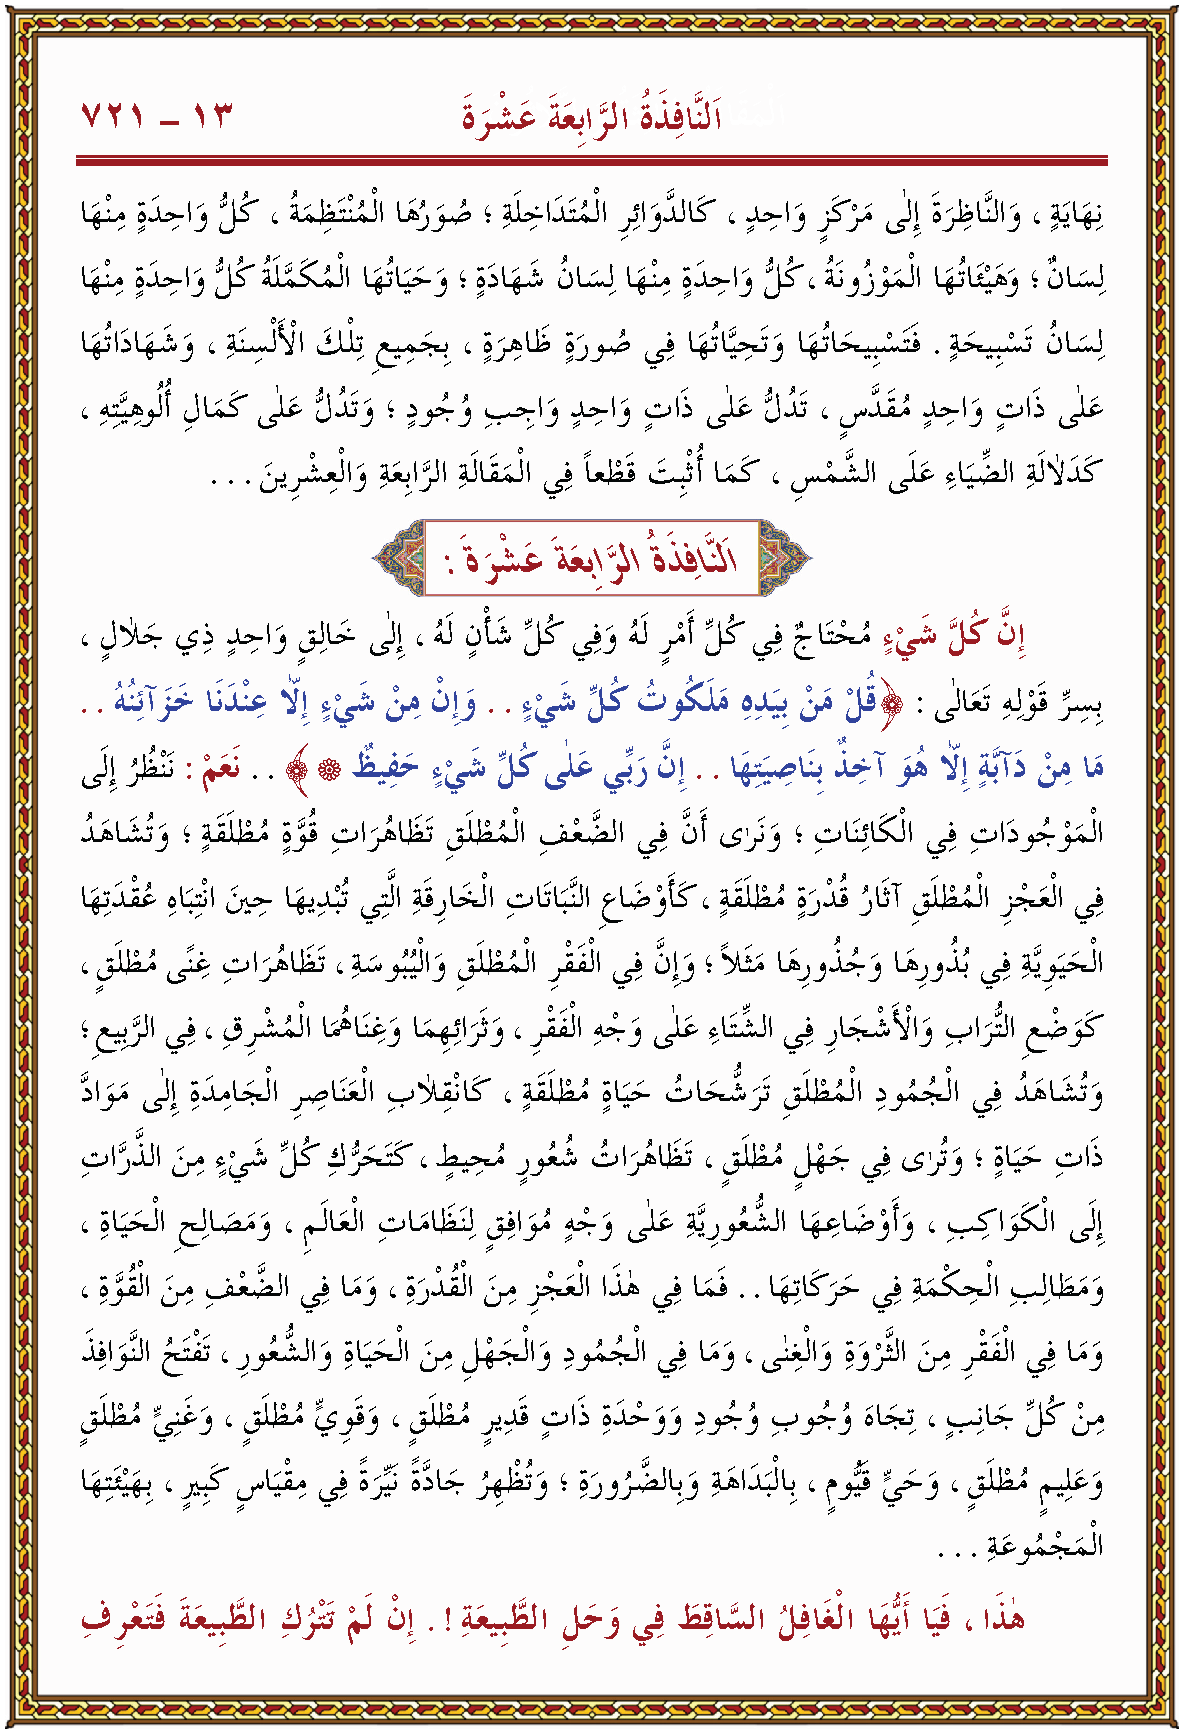 اَلنَّافِذَةُ الرَّابِعَةَ عَشْرَةَ
١٣ – ٧٢١
نِهَايَةٍ ، وَالنَّاظِرَةَ إِلٰى مَرْكَزٍ وَاحِدٍ ، كَالدَّوَائِرِ الْمُتَدَاخِلَةِ ؛ صُوَرُهَا الْمُنْتَظِمَةُ ، كُلُّ وَاحِدَةٍ مِنْهَا
لِسَانٌ ؛ وَهَيْئَاتُهَا الْمَوْزُونَةُ ، كُلُّ وَاحِدَةٍ مِنْهَا لِسَانُ شَهَادَةٍ ؛ وَحَيَاتُهَا الْمُكَمَّلَةُ كُلُّ وَاحِدَةٍ مِنْهَا
لِسَانُ تَسْبِيحَةٍ . فَتَسْبِيحَاتُهَا وَتَحِيَّاتُهَا فِي صُورَةٍ ظَاهِرَةٍ ، بِجَمِيعِ تِلْكَ الْأَلْسِنَةِ ، وَشَهَادَاتُهَا
عَلٰى ذَاتٍ وَاحِدٍ مُقَدَّسٍ ، تَدُلُّ عَلٰى ذَاتٍ وَاحِدٍ وَاجِبِ وُجُودٍ ؛ وَتَدُلُّ عَلٰى كَمَالِ أُلُوهِيَّتِهِ ،
كَدَلَالَةِ الضِّيَاءِ عَلَى الشَّمْسِ ، كَمَا أُثْبِتَ قَطْعاً فِي الْمَقَالَةِ الرَّابِعَةِ وَالْعِشْرِينَ . . .
اَلنَّافِذَةُ الرَّابِعَةَ عَشْرَةَ :
إِنَّ كُلَّ شَيْءٍ مُحْتَاجٌ فِي كُلِّ أَمْرٍ لَهُ وَفِي كُلِّ شَأْنٍ لَهُ ، إِلٰى خَالِقٍ وَاحِدٍ ذِي جَلَالٍ ،
بِسِرِّ قَوْلِهِ تَعَالٰى : ﴿قُلْ مَنْ بِيَدِهِ مَلَكُوتُ كُلِّ شَيْءٍ . . وَإِنْ مِنْ شَيْءٍ إِلَّا عِنْدَنَا خَزَآئِنُهُ . .
مَا مِنْ دَآبَّةٍ إِلَّا هُوَ آخِذٌ بِنَاصِيَتِهَا . . إِنَّ رَبِّي عَلٰى كُلِّ شَيْءٍ حَفِيظٌ ۞ ﴾ . . نَعَمْ : نَنْظُرُ إِلَى
الْمَوْجُودَاتِ فِي الْكَائِنَاتِ ؛ وَنَرٰى أَنَّ فِي الضَّعْفِ الْمُطْلَقِ تَظَاهُرَاتِ قُوَّةٍ مُطْلَقَةٍ ؛ وَتُشَاهَدُ
فِي الْعَجْزِ الْمُطْلَقِ آثَارُ قُدْرَةٍ مُطْلَقَةٍ ، كَأَوْضَاعِ النَّبَاتَاتِ الْخَارِقَةِ الَّتِي تُبْدِيهَا حِينَ انْتِبَاهِ عُقْدَتِهَا
الْحَيَوِيَّةِ فِي بُذُورِهَا وَجُذُورِهَا مَثَلاً ؛ وَإِنَّ فِي الْفَقْرِ الْمُطْلَقِ وَالْيُبُوسَةِ ، تَظَاهُرَاتِ غِنًى مُطْلَقٍ ،
كَوَضْعِ التُّرَابِ وَالْأَشْجَارِ فِي الشِّتَاءِ عَلٰى وَجْهِ الْفَقْرِ ، وَثَرَائِهِمَا وَغِنَاهُمَا الْمُشْرِقِ ، فِي الرَّبِيعِ ؛
وَتُشَاهَدُ فِي الْجُمُودِ الْمُطْلَقِ تَرَشُّحَاتُ حَيَاةٍ مُطْلَقَةٍ ، كَانْقِلَابِ الْعَنَاصِرِ الْجَامِدَةِ إِلٰى مَوَادَّ
ذَاتِ حَيَاةٍ ؛ وَتُرٰى فِي جَهْلٍ مُطْلَقٍ ، تَظَاهُرَاتُ شُعُورٍ مُحِيطٍ ، كَتَحَرُّكِ كُلِّ شَيْءٍ مِنَ الذَّرَّاتِ
إِلَى الْكَوَاكِبِ ، وَأَوْضَاعِهَا الشُّعُورِيَّةِ عَلٰى وَجْهٍ مُوَافِقٍ لِنَظَامَاتِ الْعَالَمِ ، وَمَصَالِحِ الْحَيَاةِ ،
وَمَطَالِبِ الْحِكْمَةِ فِي حَرَكَاتِهَا . . فَمَا فِي هٰذَا الْعَجْزِ مِنَ الْقُدْرَةِ ، وَمَا فِي الضَّعْفِ مِنَ الْقُوَّةِ ،
وَمَا فِي الْفَقْرِ مِنَ الثَّرْوَةِ وَالْغِنٰى ، وَمَا فِي الْجُمُودِ وَالْجَهْلِ مِنَ الْحَيَاةِ وَالشُّعُورِ ، تَفْتَحُ النَّوَافِذَ
مِنْ كُلِّ جَانِبٍ ، تِجَاهَ وُجُوبِ وُجُودِ وَوَحْدَةِ ذَاتٍ قَدِيرٍ مُطْلَقٍ ، وَقَوِيٍّ مُطْلَقٍ ، وَغَنِيٍّ مُطْلَقٍ
وَعَلِيمٍ مُطْلَقٍ ، وَحَيٍّ قَيُّومٍ ، بِالْبَدَاهَةِ وَبِالضَّرُورَةِ ؛ وَتُظْهِرُ جَادَّةً نَيِّرَةً فِي مِقْيَاسٍ كَبِيرٍ ، بِهَيْئَتِهَا
الْمَجْمُوعَةِ . . .
هٰذَا ، فَيَا أَيُّهَا الْغَافِلُ السَّاقِطَ فِي وَحَلِ الطَّبِيعَةِ ! . إِنْ لَمْ تَتْرُكِ الطَّبِيعَةَ فَتَعْرِفِ